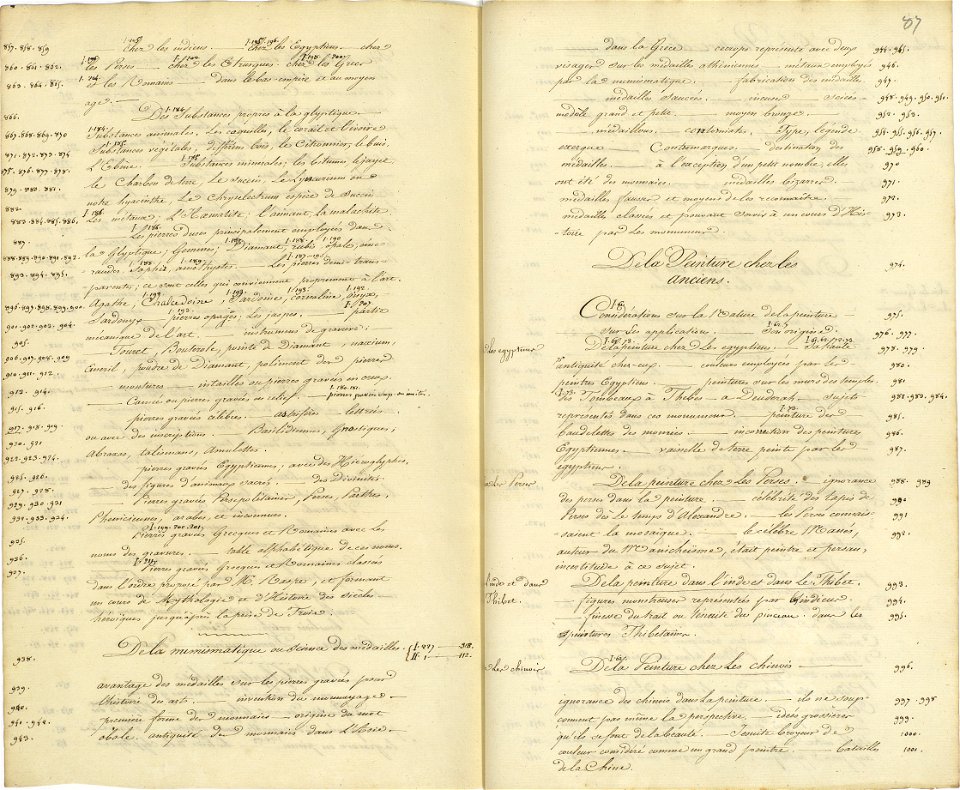 857. 858. 859 — chez les indiens. — chez les Egyptiens — chez
860. 861. 862. les Perses — chez les Etrusques chez les Grecs
863. 864. 865. et les Romains — dans le bas-empire et au moyen
age. —
866. Des Substances propres à la glyptique —
867. 868. 869. 870 Substances animales. Les coquilles, le corail et l'ivoire
Substances végétales, différens bois, le Citronnier, le buis,
871. 872. 873. 874 L'Ebène. Substances minérales; les bitumes, le jayet,
875. 876. 877. 878 le Charbon de terre, le succin, le Lyncurium ou
879. 880. 881. notre hyacinthe. Le Chryselectrum espèce de succin
882. Les métaux; L'Hœmatite; l'aimant, la malachite
883. 884. 885. 886.
887 Les pierres dures principalement employées dans
la Glyptique; Gemmes; Diamant, rubis opales, éme-
888. 889. 890. 891. raudes, Saphir, améthystes — Les pierres demi-trans-
892. 893. 894. parentes; ce sont celles qui conviennent proprement à l'art.
Agathe, Chalcedoine, Sardoine, cornaline onyx,
Sardonyx — pierres opaques, Les jaspes. — partie
901. 902. 903. 904. mécanique de l'art — instrumens de gravure:
905. Touret, Bouterole, pointe de Diamant, naxium,
906. 907. 908. 909 Emeril, poudre de Diamant, poliment des pierres
910. 911. 912. — montures — intailles ou pierres gravées en creux
913. 914. — Camées ou pierres gravées en relief. —
915. 916. pierres gravées célèbres — lettres
917. 918. 919 ou avec des inscriptions. — Basilidiennes, Gnostiques,
920. 921 Abraxas, talismans, amulettes.
922. 923. 924. pierres gravées Egyptiennes, avec des Hiéroglyphes,
925. 926. des figures d'animaux sacrés — des Divinités
927. 928. Pierres gravées Persépolitaines, Perses, Parthes,
929. 930. 931 Phéniciennes, arabes, et inconnues.
932. 933. 934. Pierres gravées Grecques et Romaines avec les
935. noms des graveurs. — table alphabétique de ces noms.
936. Pierres gravées Grecques et Romaines classées
937. dans l'ordre proposé par M. Raspe, et formant
un cours de Mythologie et d'Histoire des siècles
héroïques jusqu'après la prise de Troie.
938. De la numismatique ou science des médailles.
939. avantage des médailles sur les pierres gravées pour
l'histoire des arts. — invention du monnayage —
940. première forme des monnaies — origine du mot
941. 942. obole. antiquité des monnaies dans l'Asie —
943.
87
— dans la Grèce — cecrops représenté avec deux 944. 945.
visages sur les médailles athéniennes — métaux employés 946.
par la numismatique — fabrication des médailles 947.
— médailles saucées. — incuses — sciées — 948. 949. 950. 951.
module grand et petit. — moyen bronze. — 952. 953.
— médaillons. contorniates. Type, légende 954. 955. 956. 957.
exergue — Contremarques. destination des 958. 959. 960.
médailles. — à l'exception d'un petit nombre, elles 970
ont été des monnaies. — médailles bizarres. 971.
médailles fausses et moyens de les reconnaître. 972.
médailles classées et pouvant servir à un cours d'His- 973.
toire par les monumens.
De la Peinture chez les 974.
anciens.
Considérations sur la Nature de la peinture — 975.
— sur ses applications. — Son origine. 976. 977.
chez égyptiens De la peinture chez les egyptiens. — sa haute 978. 979.
antiquité chez-eux. — couleurs employées par les 980.
peintres Egyptiens. — peintures sur les murs des temples 981
des Tombeaux à Thèbes — a Denderah — sujets 982. 983. 984.
représentés dans ces monumens — peinture des 985.
bandelettes des momies — incorrection des peintures 986.
Egyptiennes. — vaisselle de terre peinte par les 987.
egyptiens.
De la peinture chez les Perses. — ignorance 988. 989
des perses dans la peinture — célébrité des tapis de 990
Perse dès le temps d'Alexandre — les Perses connais- 991
saient la mosaïque. — le célèbre Manès, 992.
auteur du Manichéisme, était peintre et persan,
incertitude à ce sujet.
Inde et dans De la peinture dans l'inde et dans le Thibet. 993.
Thibet. — figures monstrueuses représentées par les indiens. 994.
— finesse du trait ou tenuité du pinceau dans les 995.
peintures Thibetaines.
chez chinois De la Peinture chez les chinois — 996.
ignorance des chinois dans la peinture — ils ne soup- 997. 998
connent pas même la perspective. — idées grossières 999.
qu'ils se font de la beauté. — Jesuite broyeur de 1000.
couleurs considéré comme un grand peintre. — batailles 1001.
de la Chine.